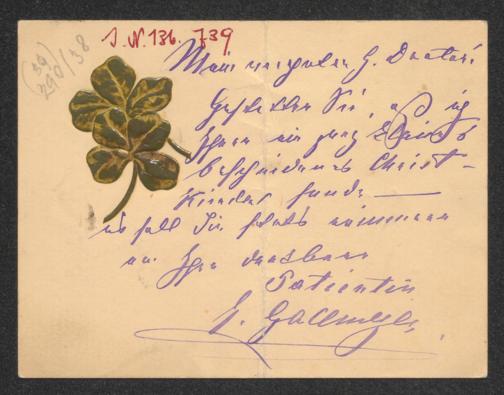 (39)
290/38
J. N. 136. 739
Mein verehrter H. Doctor!
Gestatten Sie, daß ich
Ihnen ein ganz kleines
bescheidenes Christ-
Kindel sende —
es soll Sie stets erinnern
an Ihre dankbare
Patientin
J. Gallmeyer.